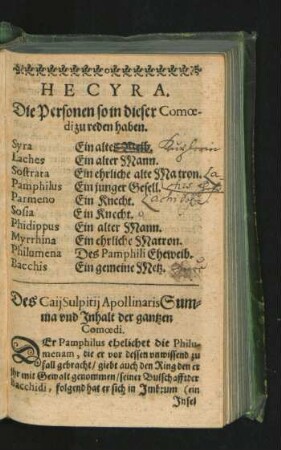 HECYRA.
Die Personen so in dieser Comœ-
di zu reden haben.
Syra Ein altes Weib.
Laches Ein alter Mann.
Sostrata Ein ehrliche alte Matron.
Pamphilus Ein junger Gesell.
Parmeno Ein Knecht.
Sosia Ein Knecht.
Phidippus Ein alter Mann.
Myrrhina Ein ehrliche Matron.
Philumena Des Pamphili Eheweib.
Bacchis Ein gemeine Metz.
Des Caij Sulpitij Apollinaris Sum-
ma vnd Inhalt der gantzen
Comœdi.
DEr Pamphilus ehelichet die Philu-
menam, die er vor dessen vnwissend zu
fall gebracht / giebt auch den Ring den er
ihr mit Gewalt genommen / seiner Bulschafft der
Bacchidi, folgend hat er sich in Imbrum (ein
Insel